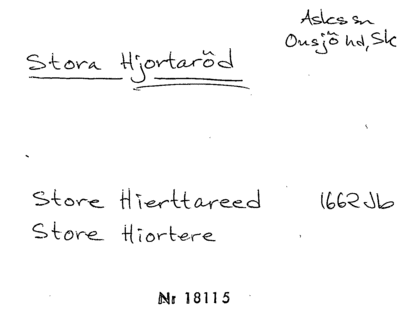 Asks sn
Onsjö hd, Sk
Stora Hjortaröd
Store Hierttareed 1662 Jb
Store Hiortere
Nr 18115